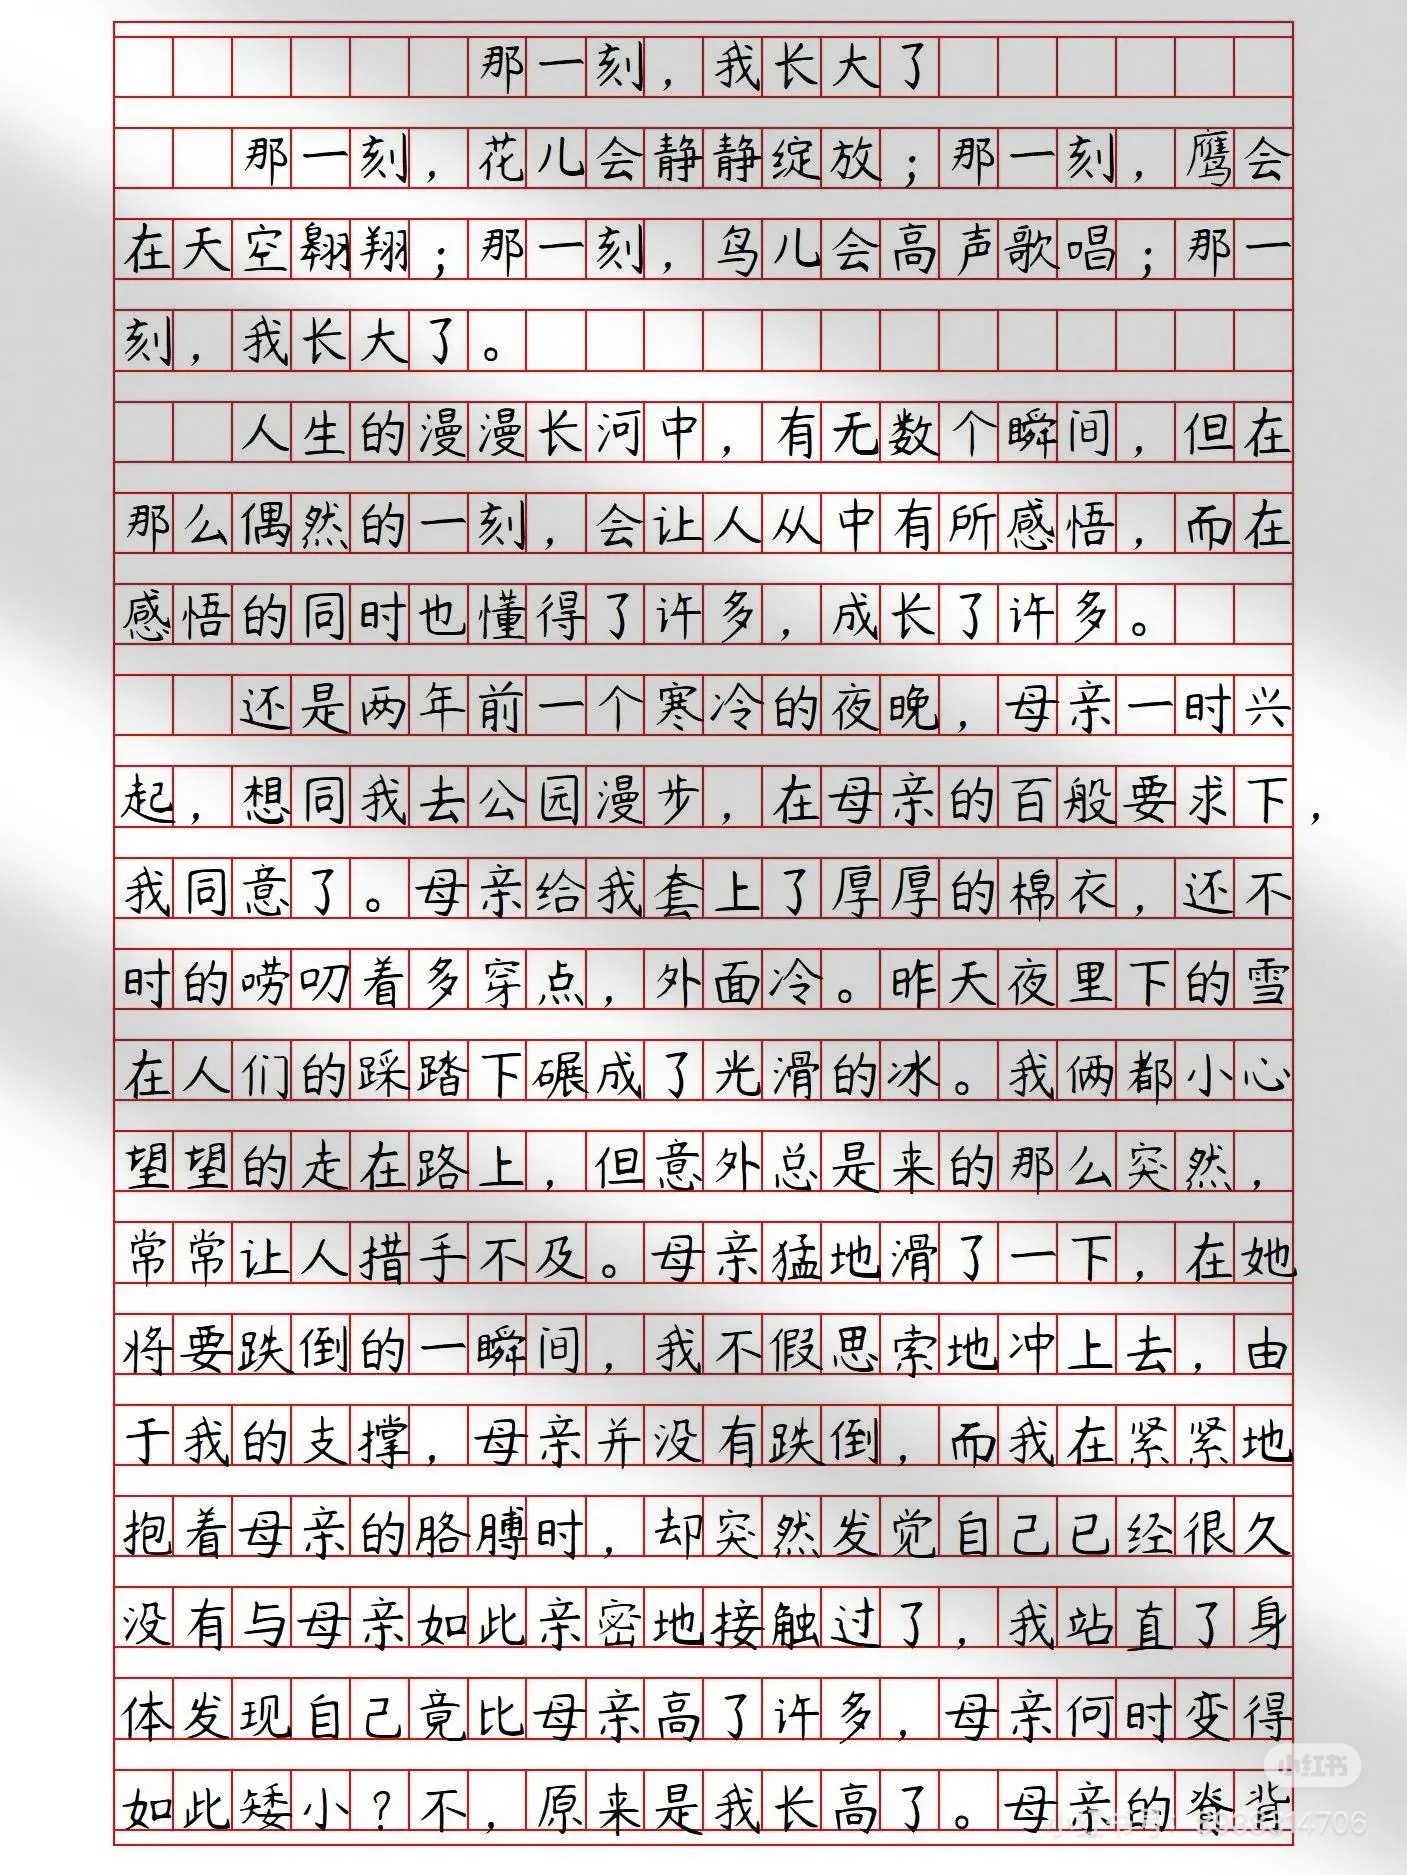 那一刻，我长大了
那一刻，花儿会静静绽放；那一刻，鹰会
在天空翱翔；那一刻，鸟儿会高声歌唱；那一
刻，我长大了。
人生的漫漫长河中，有无数个瞬间，但在
那么偶然的一刻，会让人从中有所感悟，而在
感悟的同时也懂得了许多，成长了许多。
还是两年前一个寒冷的夜晚，母亲一时兴
起，想同我去公园漫步，在母亲的百般要求下，
我同意了。母亲给我套上了厚厚的棉衣，还不
时的唠叨着多穿点，外面冷。昨天夜里下的雪
在人们的踩踏下碾成了光滑的冰。我俩都小心
望望的走在路上，但意外总是来的那么突然，
常常让人措手不及。母亲猛地滑了一下，在她
将要跌倒的一瞬间，我不假思索地冲上去，由
于我的支撑，母亲并没有跌倒，而我在紧紧地
抱着母亲的胳膊时，却突然发觉自己已经很久
没有与母亲如此亲密地接触过了，我站直了身
体发现自己竟比母亲高了许多，母亲何时变得
如此矮小？不，原来是我长高了。母亲的脊背
小红书
小红书号：